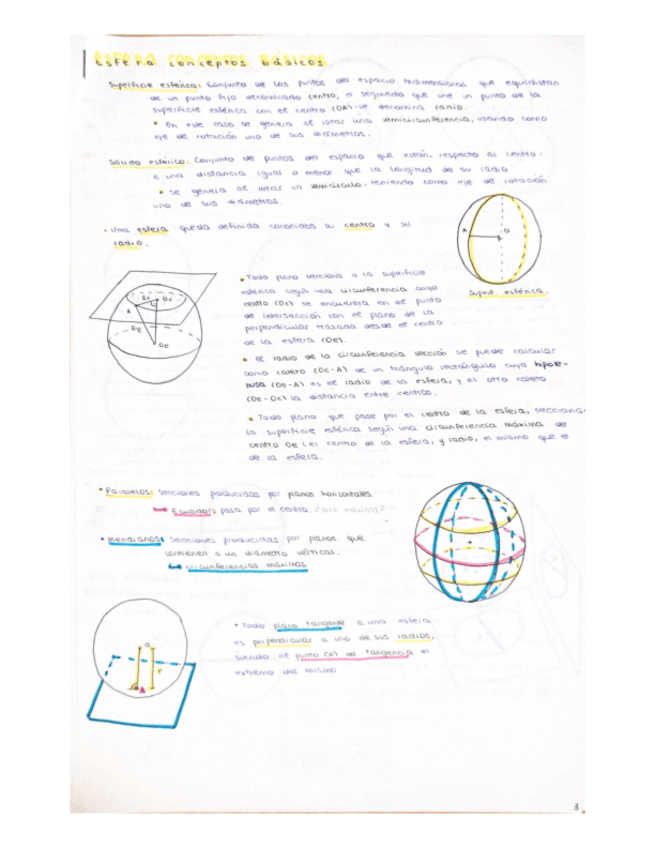 ESFERA: CONCEPTOS BÁSICOS
Superficie esférica: Conjunto de los puntos del espacio tridimensional que equidistan
de un punto fijo denominado centro, el segmento que une un punto de la
superficie esférica con el centro (OA) se denomina radio.
• En este caso se genera al rotar una semicircunferencia, usando como
eje de rotación uno de sus diámetros.
Sólido esférico: Conjunto de puntos del espacio que están, respecto al centro,
a una distancia igual o menor que la longitud de su radio.
• Se genera al rotar un semicírculo, teniendo como eje de rotación
uno de sus diámetros.
• Una esfera queda definida conocidos su centro y su
radio.
A
O
Superf. esférica.
• Todo plano secciona a la superficie
esférica según una circunferencia cuyo
centro (Oc) se encuentra en el punto
de intersección con el plano de la
perpendicular trazada desde el centro
de la esfera (Oe).
Rc
Oc
A
Re
Oe
• El radio de la circunferencia sección se puede calcular
como cateto (Oc-A) de un triángulo rectángulo cuya hipote-
nusa (Oe-A) es el radio de la esfera, y el otro cateto
(Oe-Oc) la distancia entre centros.
• Todo plano que pase por el centro de la esfera, secciona
la superficie esférica según una circunferencia máxima de
centro Oe (el centro de la esfera, y radio, el mismo que el
de la esfera.
• Paralelos: secciones producidas por planos horizontales
Ecuador: pasa por el centro,
• Meridianos: secciones producidas por planos que
contienen a un diámetro vertical.
circunferencias máximas
• Todo plano tangente a una esfera
es perpendicular a uno de sus radios,
siendo el punto (A) de tangencia el
extremo del mismo
O
r
A
3